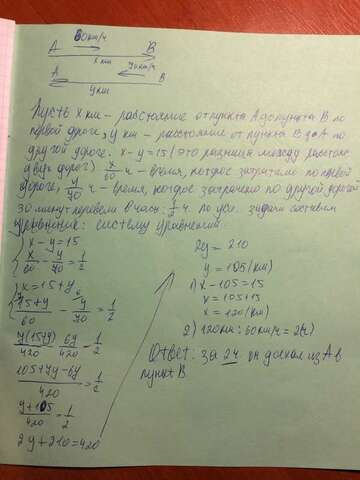 60км/ч
A B
x км
A 70км/ч B
y км
Пусть x км - расстояние от пункта A до пункта B по
первой дороге, y км - расстояние от пункта B до A по
другой дороге. x - y = 15 (это разница между расстоян.
двух дорог) x/60 ч - время, которое затратили по первой
дороге, y/70 ч - время, которое затрачено по другой дороге
30 минут перевели в часы: 1/2 ч. По усл. задачи составим
уравнение: систему уравнений
{ x - y = 15
x/60 - y/70 = 1/2
1) x = 15 + y
15+y/60 - y/70 = 1/2
7(15+y)/420 - 6y/420 = 1/2
105+7y-6y/420 = 1/2
y+105/420 = 1/2
2y + 210 = 420
2y = 210
y = 105 (км)
1) x - 105 = 15
x = 105+15
x = 120 (км)
2) 120км : 60км/ч = 2(ч)
Ответ: за 2ч он доехал из A в
пункт B